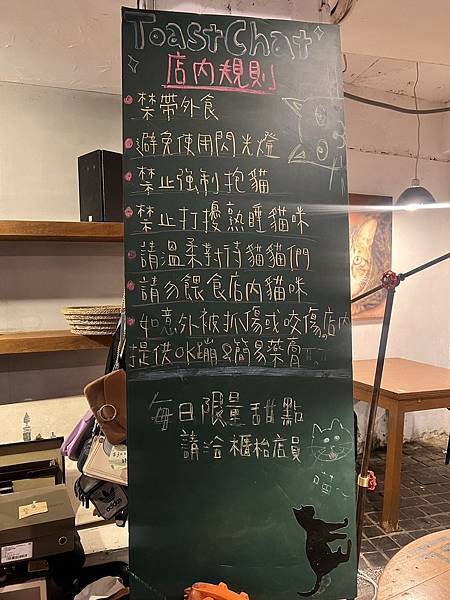 ToastChat
店內規則
禁帶外食
避免使用閃光燈
禁止強制抱貓
禁止打擾熟睡貓咪
請溫柔對待貓貓們
請勿餵食店內貓咪
如意外被抓傷或咬傷店內
提供OK蹦&簡易藥膏
每日限量甜點
請洽櫃枱店員
喵~
adidas